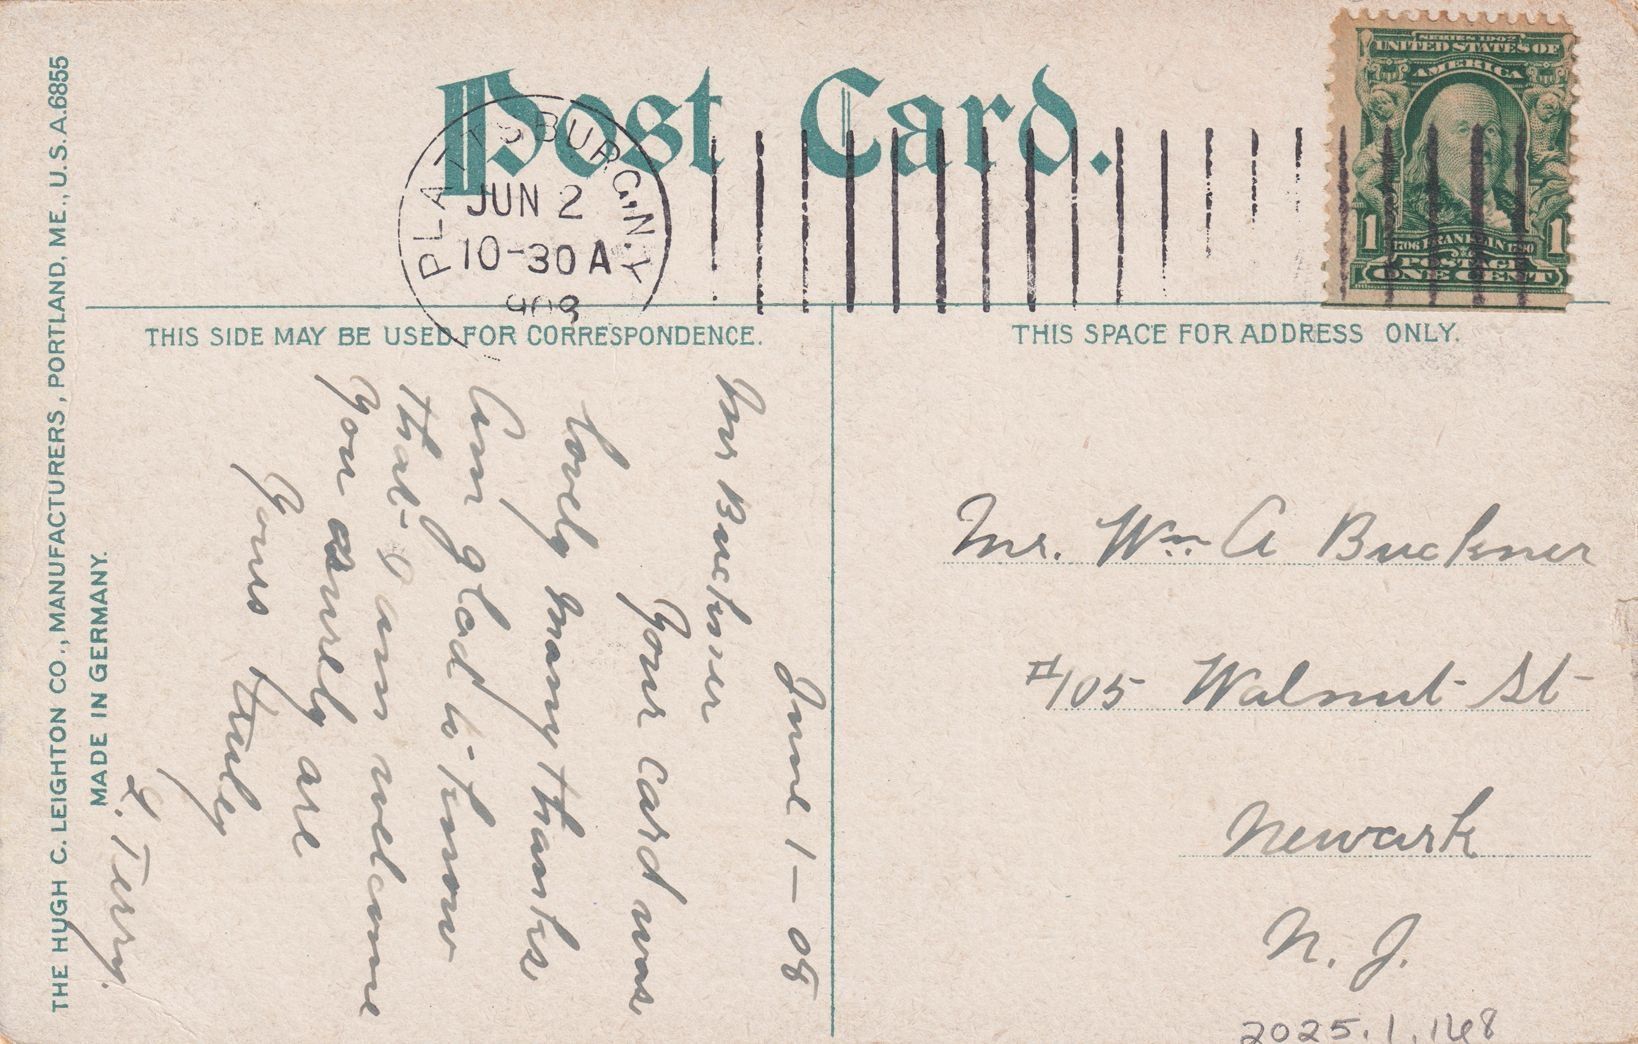 Post Card.
PLATTSBURG, N.Y.
JUN 2
10-30 A
1908
SERIES 1902
UNITED STATES OF
AMERICA
1 1706 FRANKLIN 1790 1
POSTAGE
ONE CENT
THIS SIDE MAY BE USED FOR CORRESPONDENCE.
June 1 — 08
Mr Buckner
Your card was
lovely many thanks,
Am glad to know
that I am welcome
You surely are
Yours truly
L. Terry.
THIS SPACE FOR ADDRESS ONLY.
Mr. Wm A Buckner
#105 Walnut St
Newark
N. J.
2025.1.168
THE HUGH C. LEIGHTON CO., MANUFACTURERS, PORTLAND, ME., U.S.A. 6855
MADE IN GERMANY.